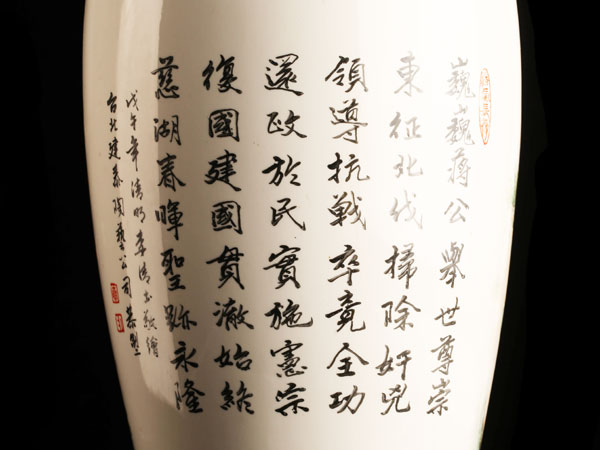 巍巍蔣公舉世尊崇
東征北伐掃除奸兇
領導抗戰卒竟全功
還政於民實施憲宗
復國建國貫澈始終
慈湖春暉聖跡永隆
戊午年清明李清
台北建泰陶藝公司